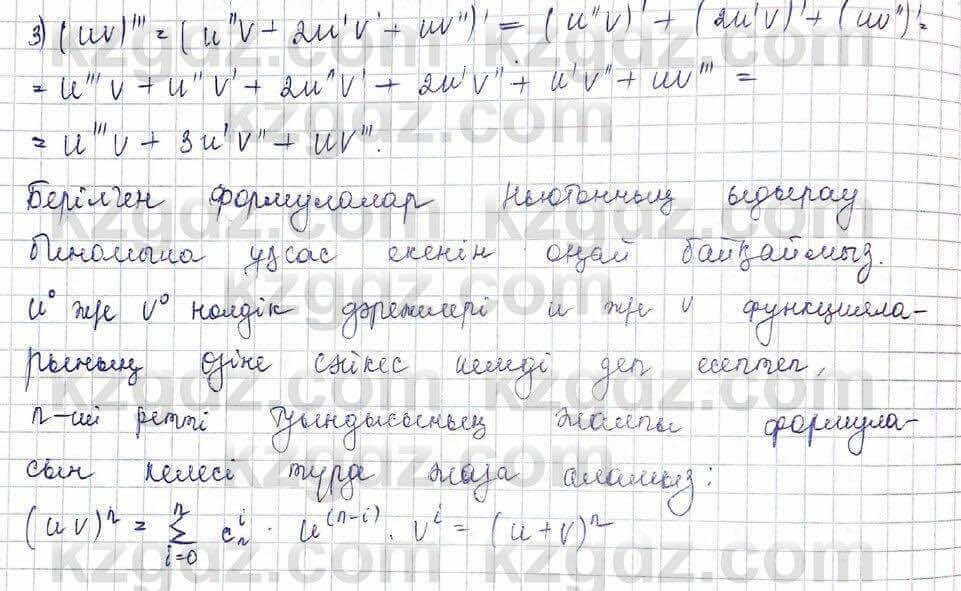 3) (uv)''' = (u''v + 2u'v' + uv'')' = (u''v)' + (2u'v)' + (uv'')' =
= u'''v + u''v' + 2u''v' + 2u'v'' + u'v'' + uv''' =
= u'''v + 3u'v'' + uv'''.
Берілген формулалар Ньютонның ыдырау
биномына ұқсас екенін оңай байқаймыз.
u⁰ және v⁰ нөлдік дәрежелері u және v функцияла-
рының өзіне сәйкес келеді деп есептеп,
n-ші ретті туындысының жалпы формула-
сын келесі түрде жаза аламыз:
(uv)ⁿ = Σ (i=0, n) cₙⁱ · u⁽ⁿ⁻ⁱ⁾ · vⁱ = (u+v)ⁿ
kzgdz.com